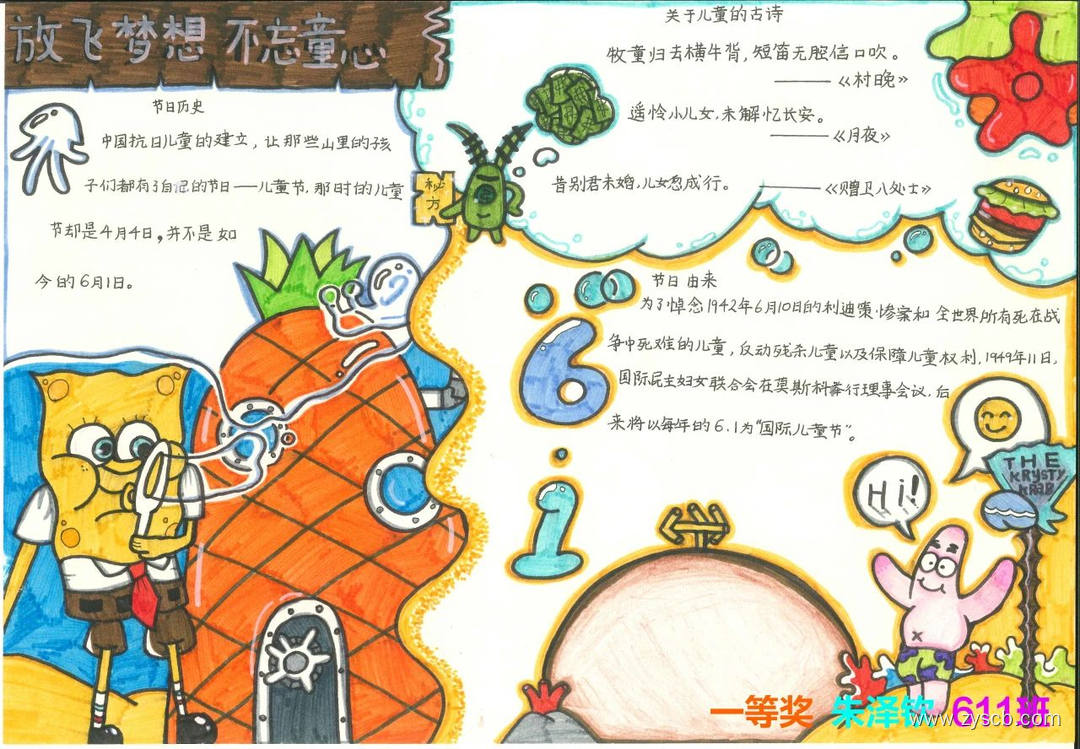 放飞梦想 不忘童心
节日历史
中国抗日儿童的建立，让那些山里的孩
子们都有了自己的节日——儿童节，那时的儿童
节却是4月4日，并不是如
今的6月1日。
关于儿童的古诗
牧童归去横牛背，短笛无腔信口吹。
——《村晚》
遥怜小儿女，未解忆长安。
——《月夜》
昔别君未婚，儿女忽成行。
——《赠卫八处士》
秘方
节日由来
为了悼念1942年6月10日的利迪策惨案和全世界所有死在战
争中死难的儿童，反动残杀儿童以及保障儿童权利，1949年11月，
国际民主妇女联合会在莫斯科举行理事会议，后
来将以每年的6.1为“国际儿童节”。
6
1
Hi!
THE
KRYSTY
KRAB
一等奖 朱泽钦 611班
www.zyscb.com